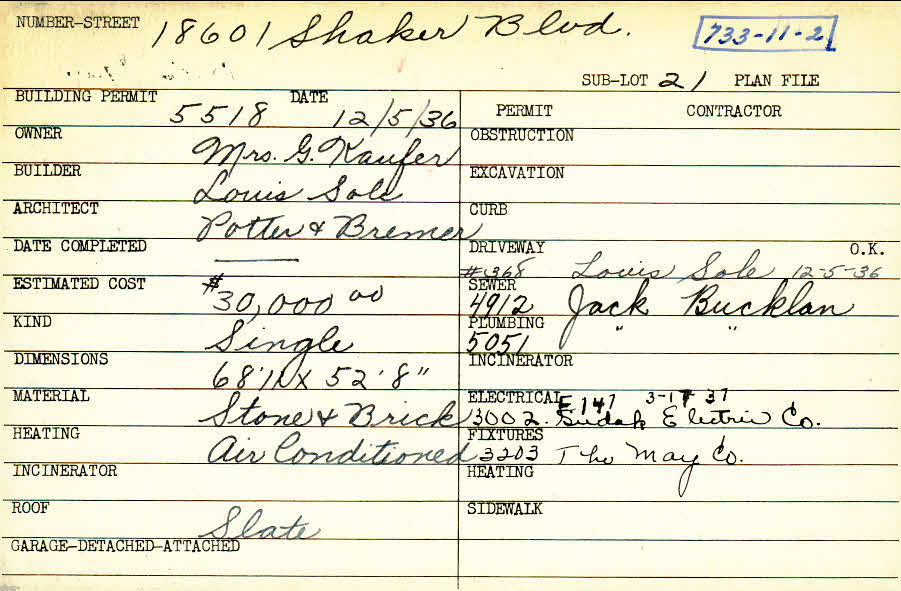 NUMBER-STREET 18601 Shaker Blvd. 733-11-2
SUB-LOT 21 PLAN FILE
BUILDING PERMIT 5518 DATE 12/5/36
PERMIT CONTRACTOR
OWNER Mrs. G. Kaufer
OBSTRUCTION
BUILDER Louis Sole
EXCAVATION
ARCHITECT Potter & Bremer
CURB
DATE COMPLETED ———
DRIVEWAY O.K.
#368 Louis Sole 12-5-36
ESTIMATED COST $30,000 00
SEWER
4912 Jack Bucklan
KIND Single
PLUMBING
5051 " "
DIMENSIONS 68' X 52'8"
INCINERATOR
MATERIAL Stone & Brick
ELECTRICAL E147 3-17-37
3002 Electric Co.
HEATING Air Conditioned
FIXTURES
3203 The May Co.
INCINERATOR
HEATING
ROOF Slate
SIDEWALK
GARAGE-DETACHED-ATTACHED